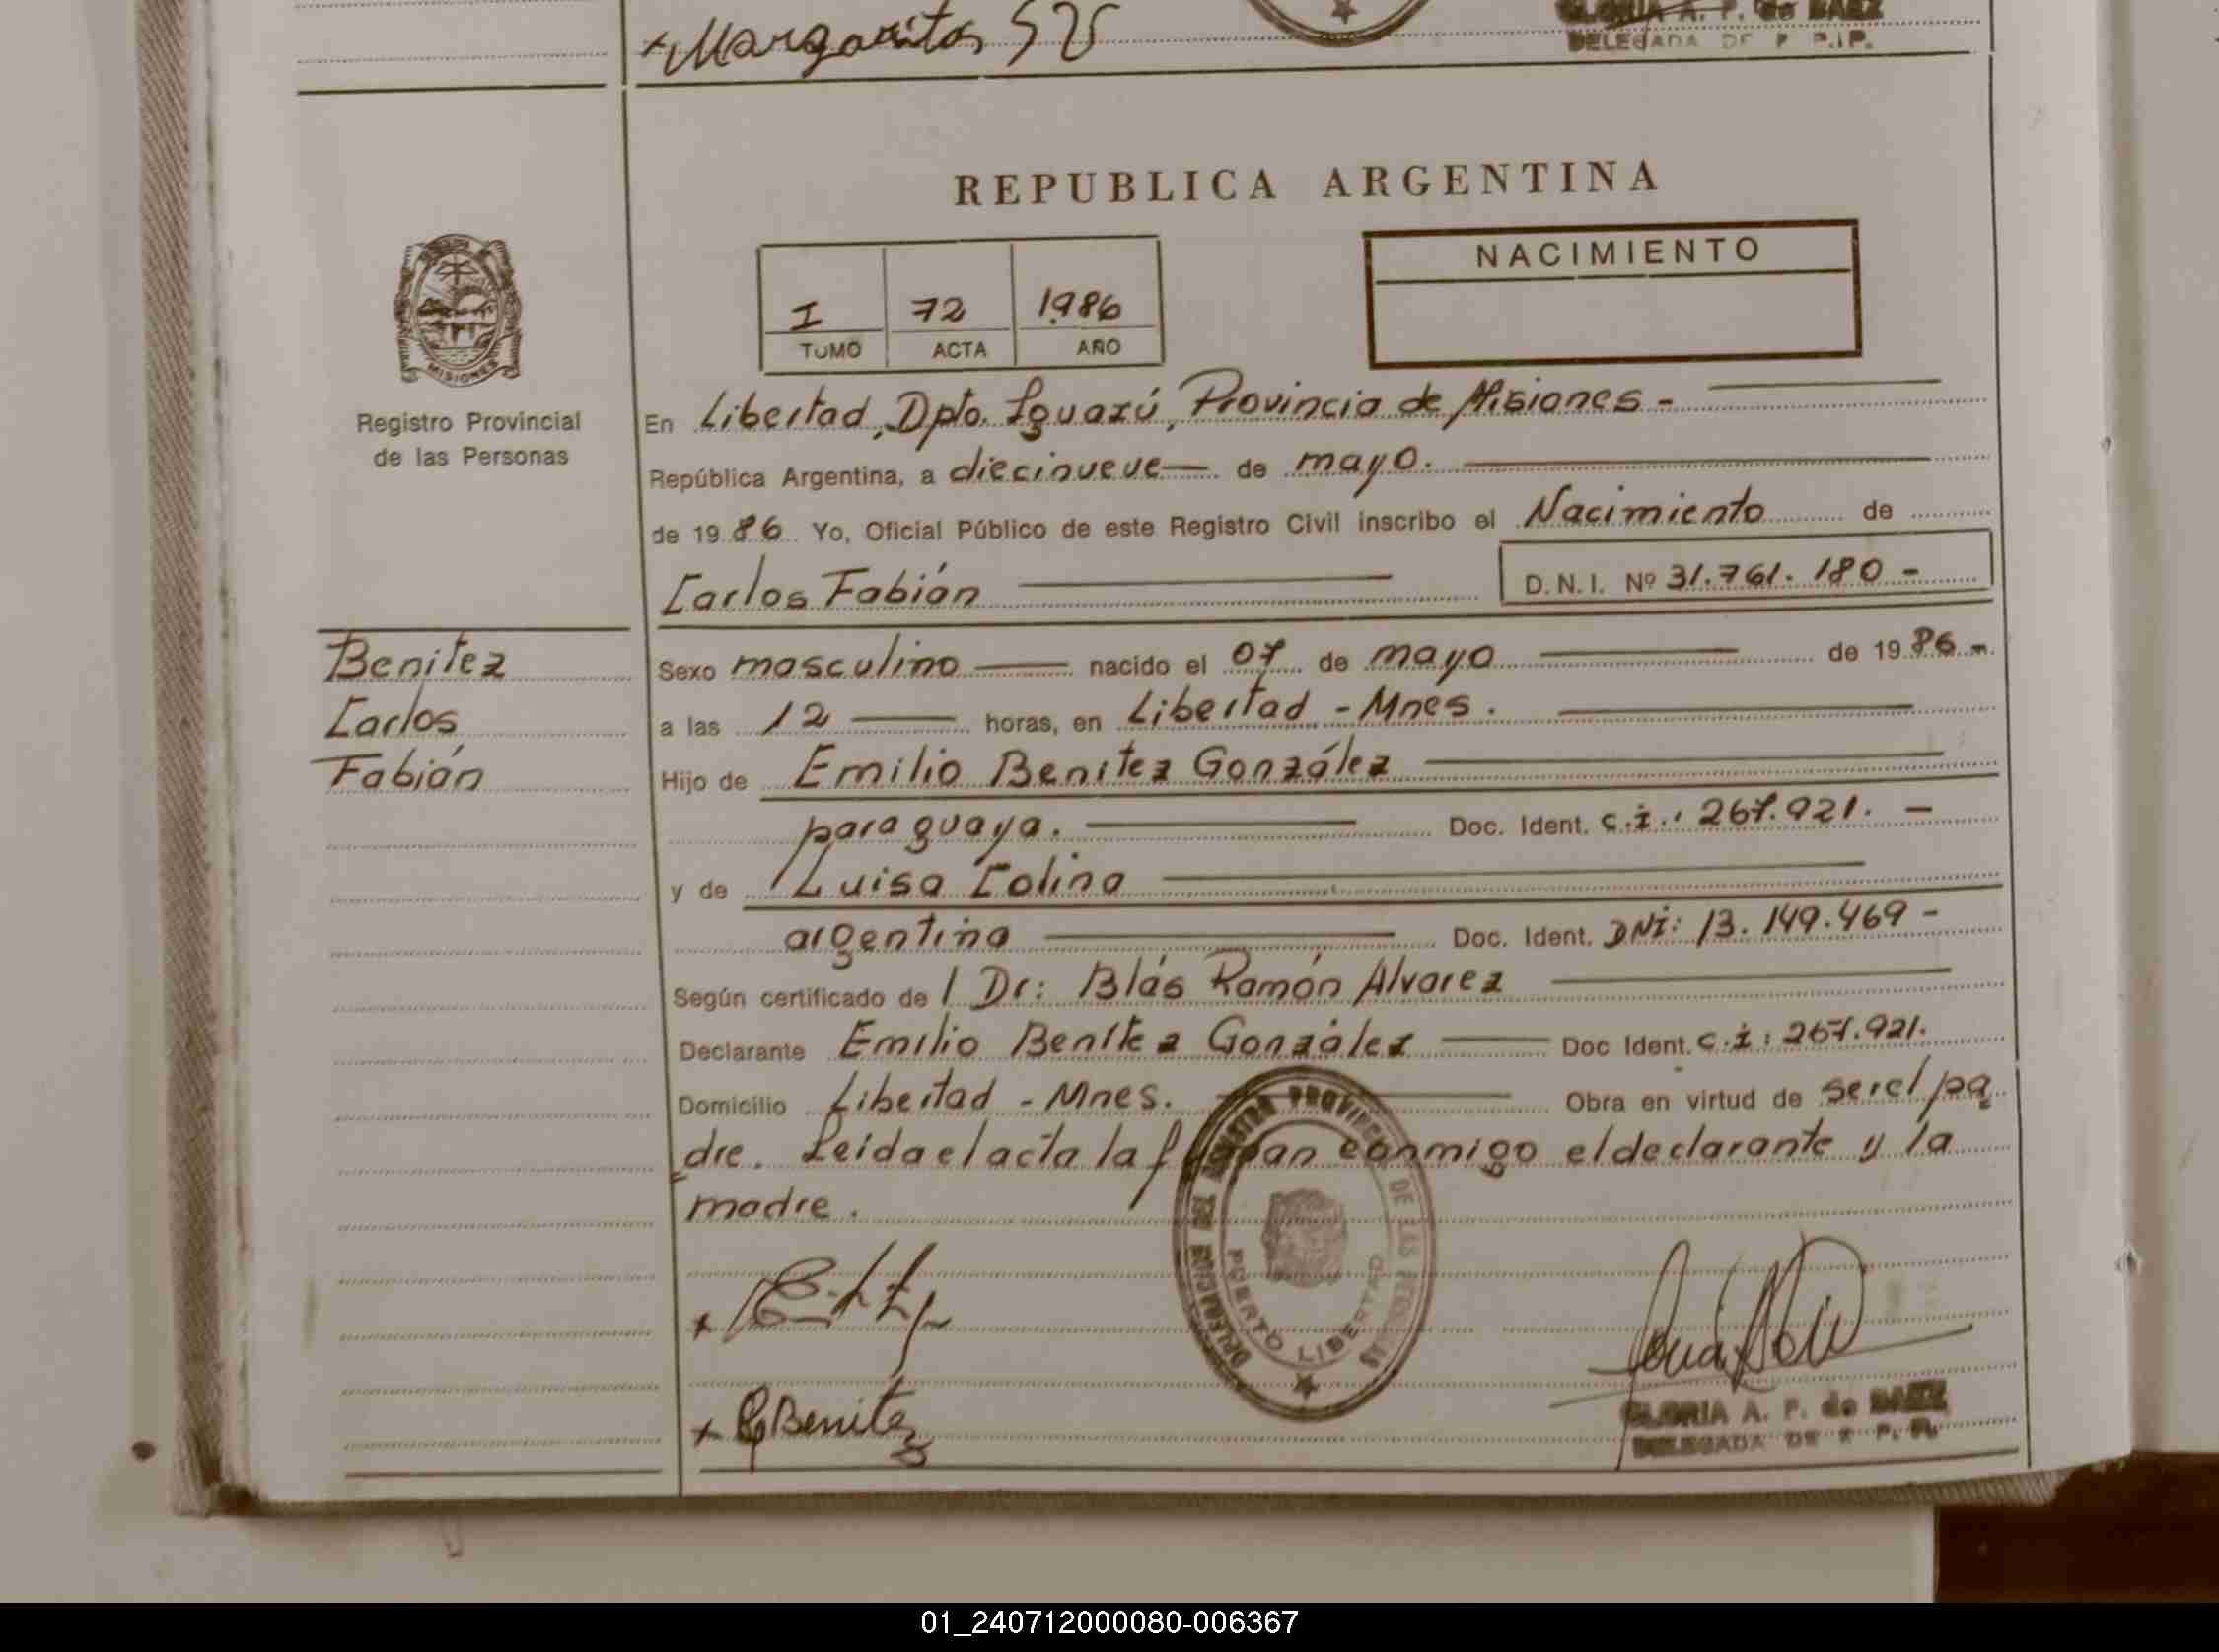 x Margaritas
GLORIA A. P. de BAEZ
DELEGADA DE
REPUBLICA ARGENTINA
NACIMIENTO
I 72 1986
TOMO ACTA AÑO
MISIONES
Registro Provincial
de las Personas
En Libertad, Dpto. Iguazú, Provincia de Misiones -
República Argentina, a diecinueve de mayo.
de 1986 Yo, Oficial Público de este Registro Civil inscribo el Nacimiento de
Carlos Fabián D.N.I. Nº 31.761.180 -
Benitez
Carlos
Fabián
Sexo masculino nacido el 07 de mayo de 1986 -
a las 12 horas, en Libertad - Mnes.
Hijo de Emilio Benitez González
paraguaya. Doc. Ident. C.I.: 267.921. -
y de Luisa Colina
argentina Doc. Ident. DNI: 13.149.469 -
Según certificado de Dr: Blás Ramón Alvarez
Declarante Emilio Benítez González Doc Ident. C.I: 267.921.
Domicilio Libertad - Mnes. Obra en virtud de ser el pa
dre. Leida el acta la firman conmigo el declarante y la
madre.
DELEGACION DEL REGISTRO PROVINCIAL DE LAS PERSONAS
PUERTO LIBERTAD
x Benitez
GLORIA A. P. de BAEZ
DELEGADA DE R. P. P.
01_240712000080-006367